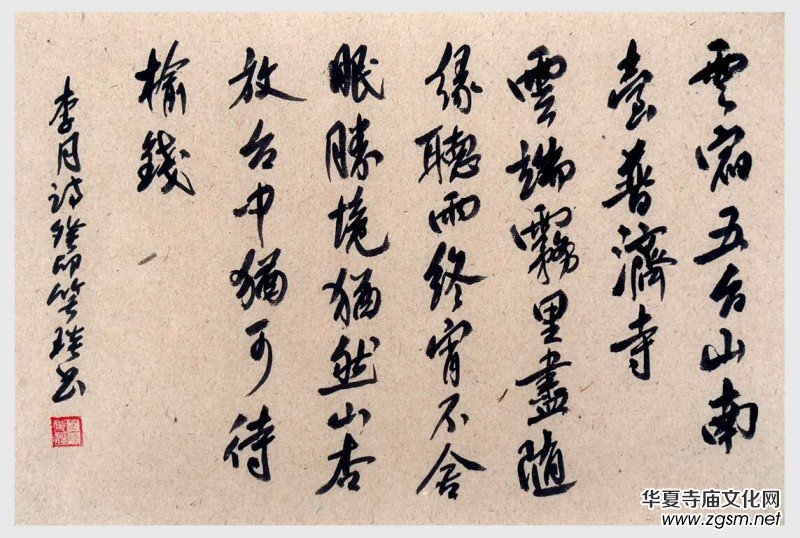 雲宿五台山南
臺普濟寺
雲端霧里盡隨
緣聽雨終宵不舍
眠勝境猶然山杏
放台中猶可待
榆錢
李月詩癸卯笑琰书
华夏寺庙文化网
www.zgsm.net